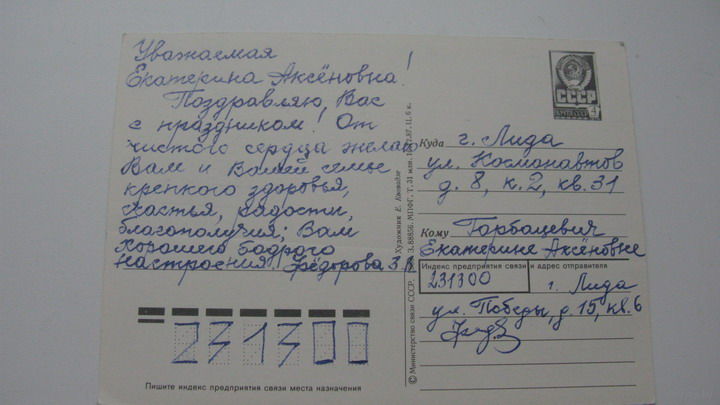 Уважаемая
Екатерина Аксёновна!
Поздравляю, Вас
с праздником! От
чистого сердца желаю
Вам и Вашей семье
крепкого здоровья,
счастья, радости,
благополучия; Вам
хорошего бодрого
настроения! Фёдорова З.
Художник Е. Квавадзе
© Министерство связи СССР,
З. 88856. МПФГ. Т. 31 млн.
87. Ц. 6 к.
СССР
4
Куда г. Лида
ул. Космонавтов
д. 8, к. 2, кв. 31
Кому Горбацевич
Екатерине Аксёновне
Индекс предприятия связи и адрес отправителя
231300 г. Лида
ул. Победы, д. 15, кв. 6
231300
Пишите индекс предприятия связи места назначения